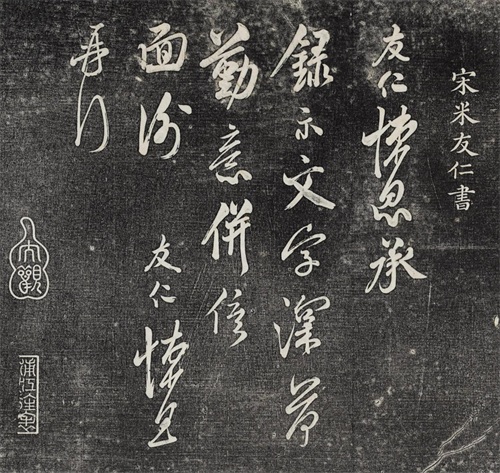 宋米友仁書
友仁悚息承
録示文字深荷
勤意併俟
面謝
友仁悚息
大觀